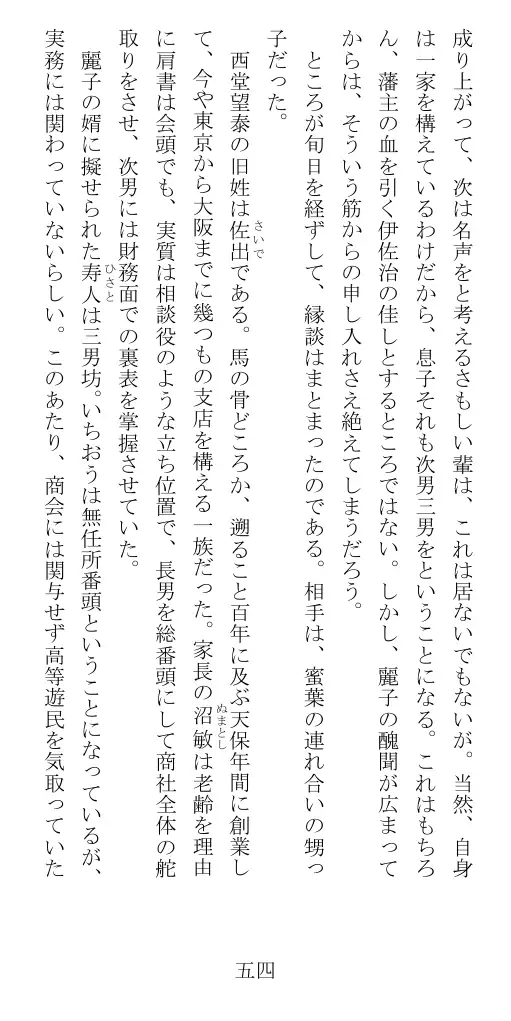 成り上がって、次は名声をと考えるさもしい輩は、これは居ないでもないが。当然、自身
は一家を構えているわけだから、息子それも次男三男をということになる。これはもちろ
ん、藩主の血を引く伊佐治の佳しとするところではない。しかし、麗子の醜聞が広まって
からは、そういう筋からの申し入れさえ絶えてしまうだろう。
ところが旬日を経ずして、縁談はまとまったのである。相手は、蜜葉の連れ合いの甥っ
子だった。
西堂望泰の旧姓は佐出である。馬の骨どころか、遡ること百年に及ぶ天保年間に創業し
さいで
て、今や東京から大阪までに幾つもの支店を構える一族だった。家長の沼敏は老齢を理由
ぬまとし
に肩書は会頭でも、実質は相談役のような立ち位置で、長男を総番頭にして商社全体の舵
取りをさせ、次男には財務面での裏表を掌握させていた。
麗子の婿に擬せられた寿人は三男坊。いちおうは無任所番頭ということになっているが、
ひさと
実務には関わっていないらしい。このあたり、商会には関与せず高等遊民を気取っていた
五四